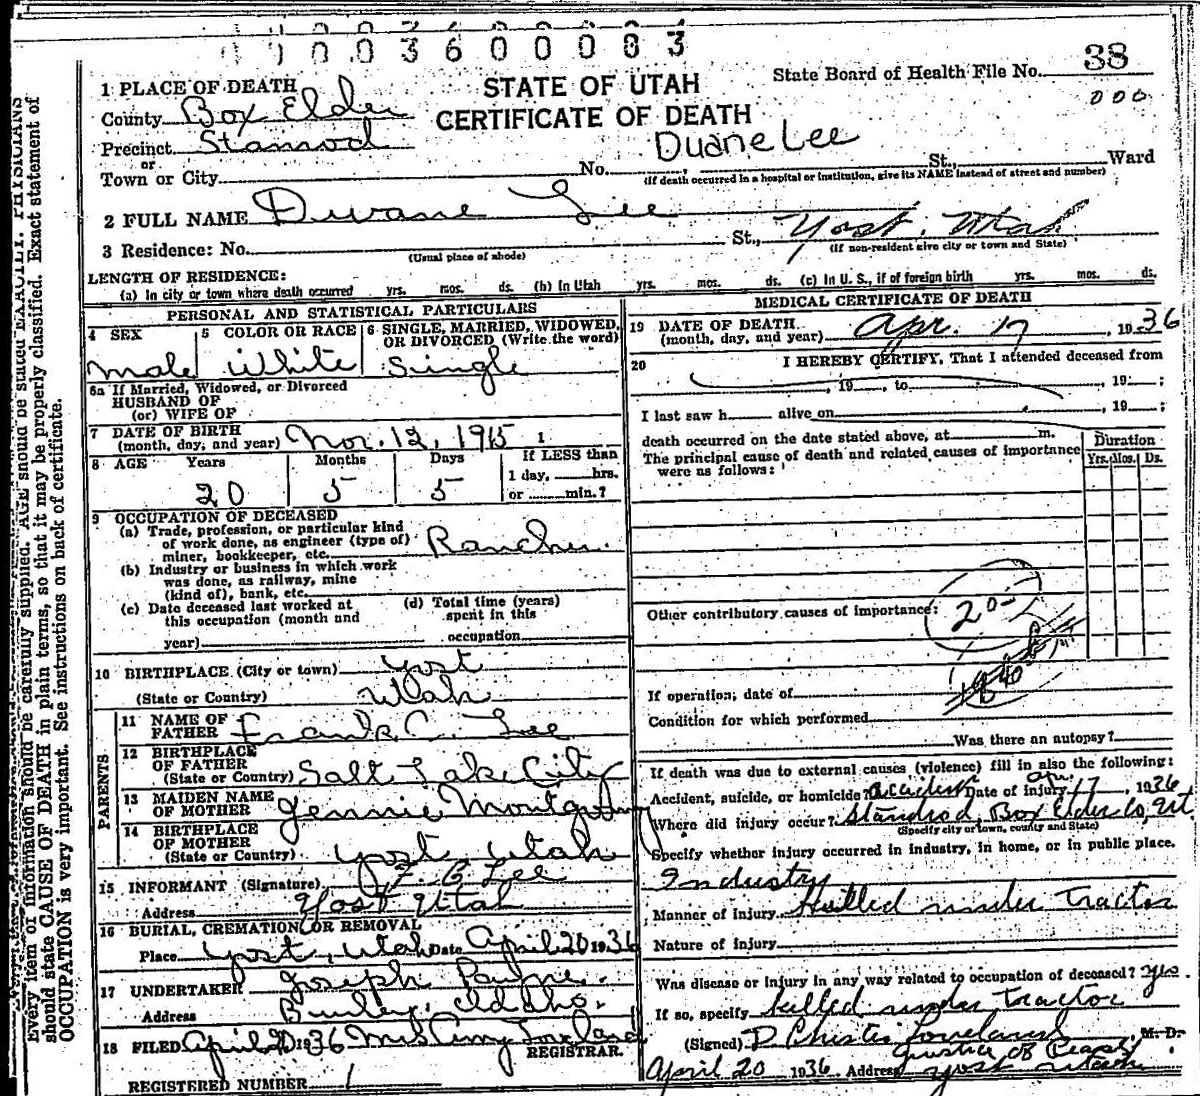 1 1 0 0 3 6 0 0 0 0 8 3
STATE OF UTAH
CERTIFICATE OF DEATH
State Board of Health File No. 38
000
1 PLACE OF DEATH
County Box Elder
Precinct Stanrod
or
Town or City No. St., Ward
Duane Lee
(If death occurred in a hospital or institution, give its NAME instead of street and number)
2 FULL NAME Dwane Lee
3 Residence: No. St., Yost, Utah
(Usual place of abode)
(If non-resident give city or town and State)
LENGTH OF RESIDENCE:
(a) In city or town where death occurred yrs. mos. ds. (b) In Utah yrs. mos. ds. (c) In U. S., if of foreign birth yrs. mos. ds.
PERSONAL AND STATISTICAL PARTICULARS
4 SEX male
5 COLOR OR RACE White
6 SINGLE, MARRIED, WIDOWED, OR DIVORCED (Write the word) Single
6a If Married, Widowed, or Divorced
HUSBAND OF
(or) WIFE OF
7 DATE OF BIRTH
(month, day, and year) Nov. 12, 1915
8 AGE Years Months Days If LESS than
1 day, hrs.
or min.?
20 5 5
9 OCCUPATION OF DECEASED
(a) Trade, profession, or particular kind
of work done, as engineer (type of)
miner, bookkeeper, etc. Rancher
(b) Industry or business in which work
was done, as railway, mine
(kind of), bank, etc.
(c) Date deceased last worked at
this occupation (month and
year)
(d) Total time (years)
spent in this
occupation
10 BIRTHPLACE (City or town) Yost
(State or Country) Utah
PARENTS
11 NAME OF
FATHER Frank C. Lee
12 BIRTHPLACE
OF FATHER
(State or Country) Salt Lake City
13 MAIDEN NAME
OF MOTHER Jennie Montgomery
14 BIRTHPLACE
OF MOTHER
(State or Country) Yost Utah
15 INFORMANT (Signature) F. C. Lee
Address Yost Utah
16 BURIAL, CREMATION OR REMOVAL
Place Yost, Utah Date April 20 1936
17 UNDERTAKER Joseph Payne
Address Burley, Idaho.
18 FILED April 20 1936 Mrs Loveland
REGISTRAR.
REGISTERED NUMBER 1
MEDICAL CERTIFICATE OF DEATH
19 DATE OF DEATH
(month, day, and year) Apr. 17, 1936
20 I HEREBY CERTIFY, That I attended deceased from
, 19 , to , 19 ;
I last saw h alive on , 19 ;
death occurred on the date stated above, at m.
The principal cause of death and related causes of importance
were as follows:
Duration
Yrs. Mos. Ds.
Other contributory causes of importance:
20-
If operation, date of
Condition for which performed
Was there an autopsy?
If death was due to external causes (violence) fill in also the following:
Accident, suicide, or homicide? Accident Date of injury Apr. 17, 1936
Where did injury occur? Standrod, Box Elder Co, Ut.
(Specify city or town, county and State)
Specify whether injury occurred in industry, in home, or in public place.
Industry
Manner of injury Killed under tractor
Nature of injury
Was disease or injury in any way related to occupation of deceased? Yes.
If so, specify killed under tractor
(Signed) Loveland M. D.
Justice of Peace
April 20 1936 Address Yost Utah
should be stated EXACTLY. PHYSICIANS
Every item of information should be carefully supplied. AGE
should state CAUSE OF DEATH in plain terms, so that it may be properly classified. Exact statement of
OCCUPATION is very important. See instructions on back of certificate.